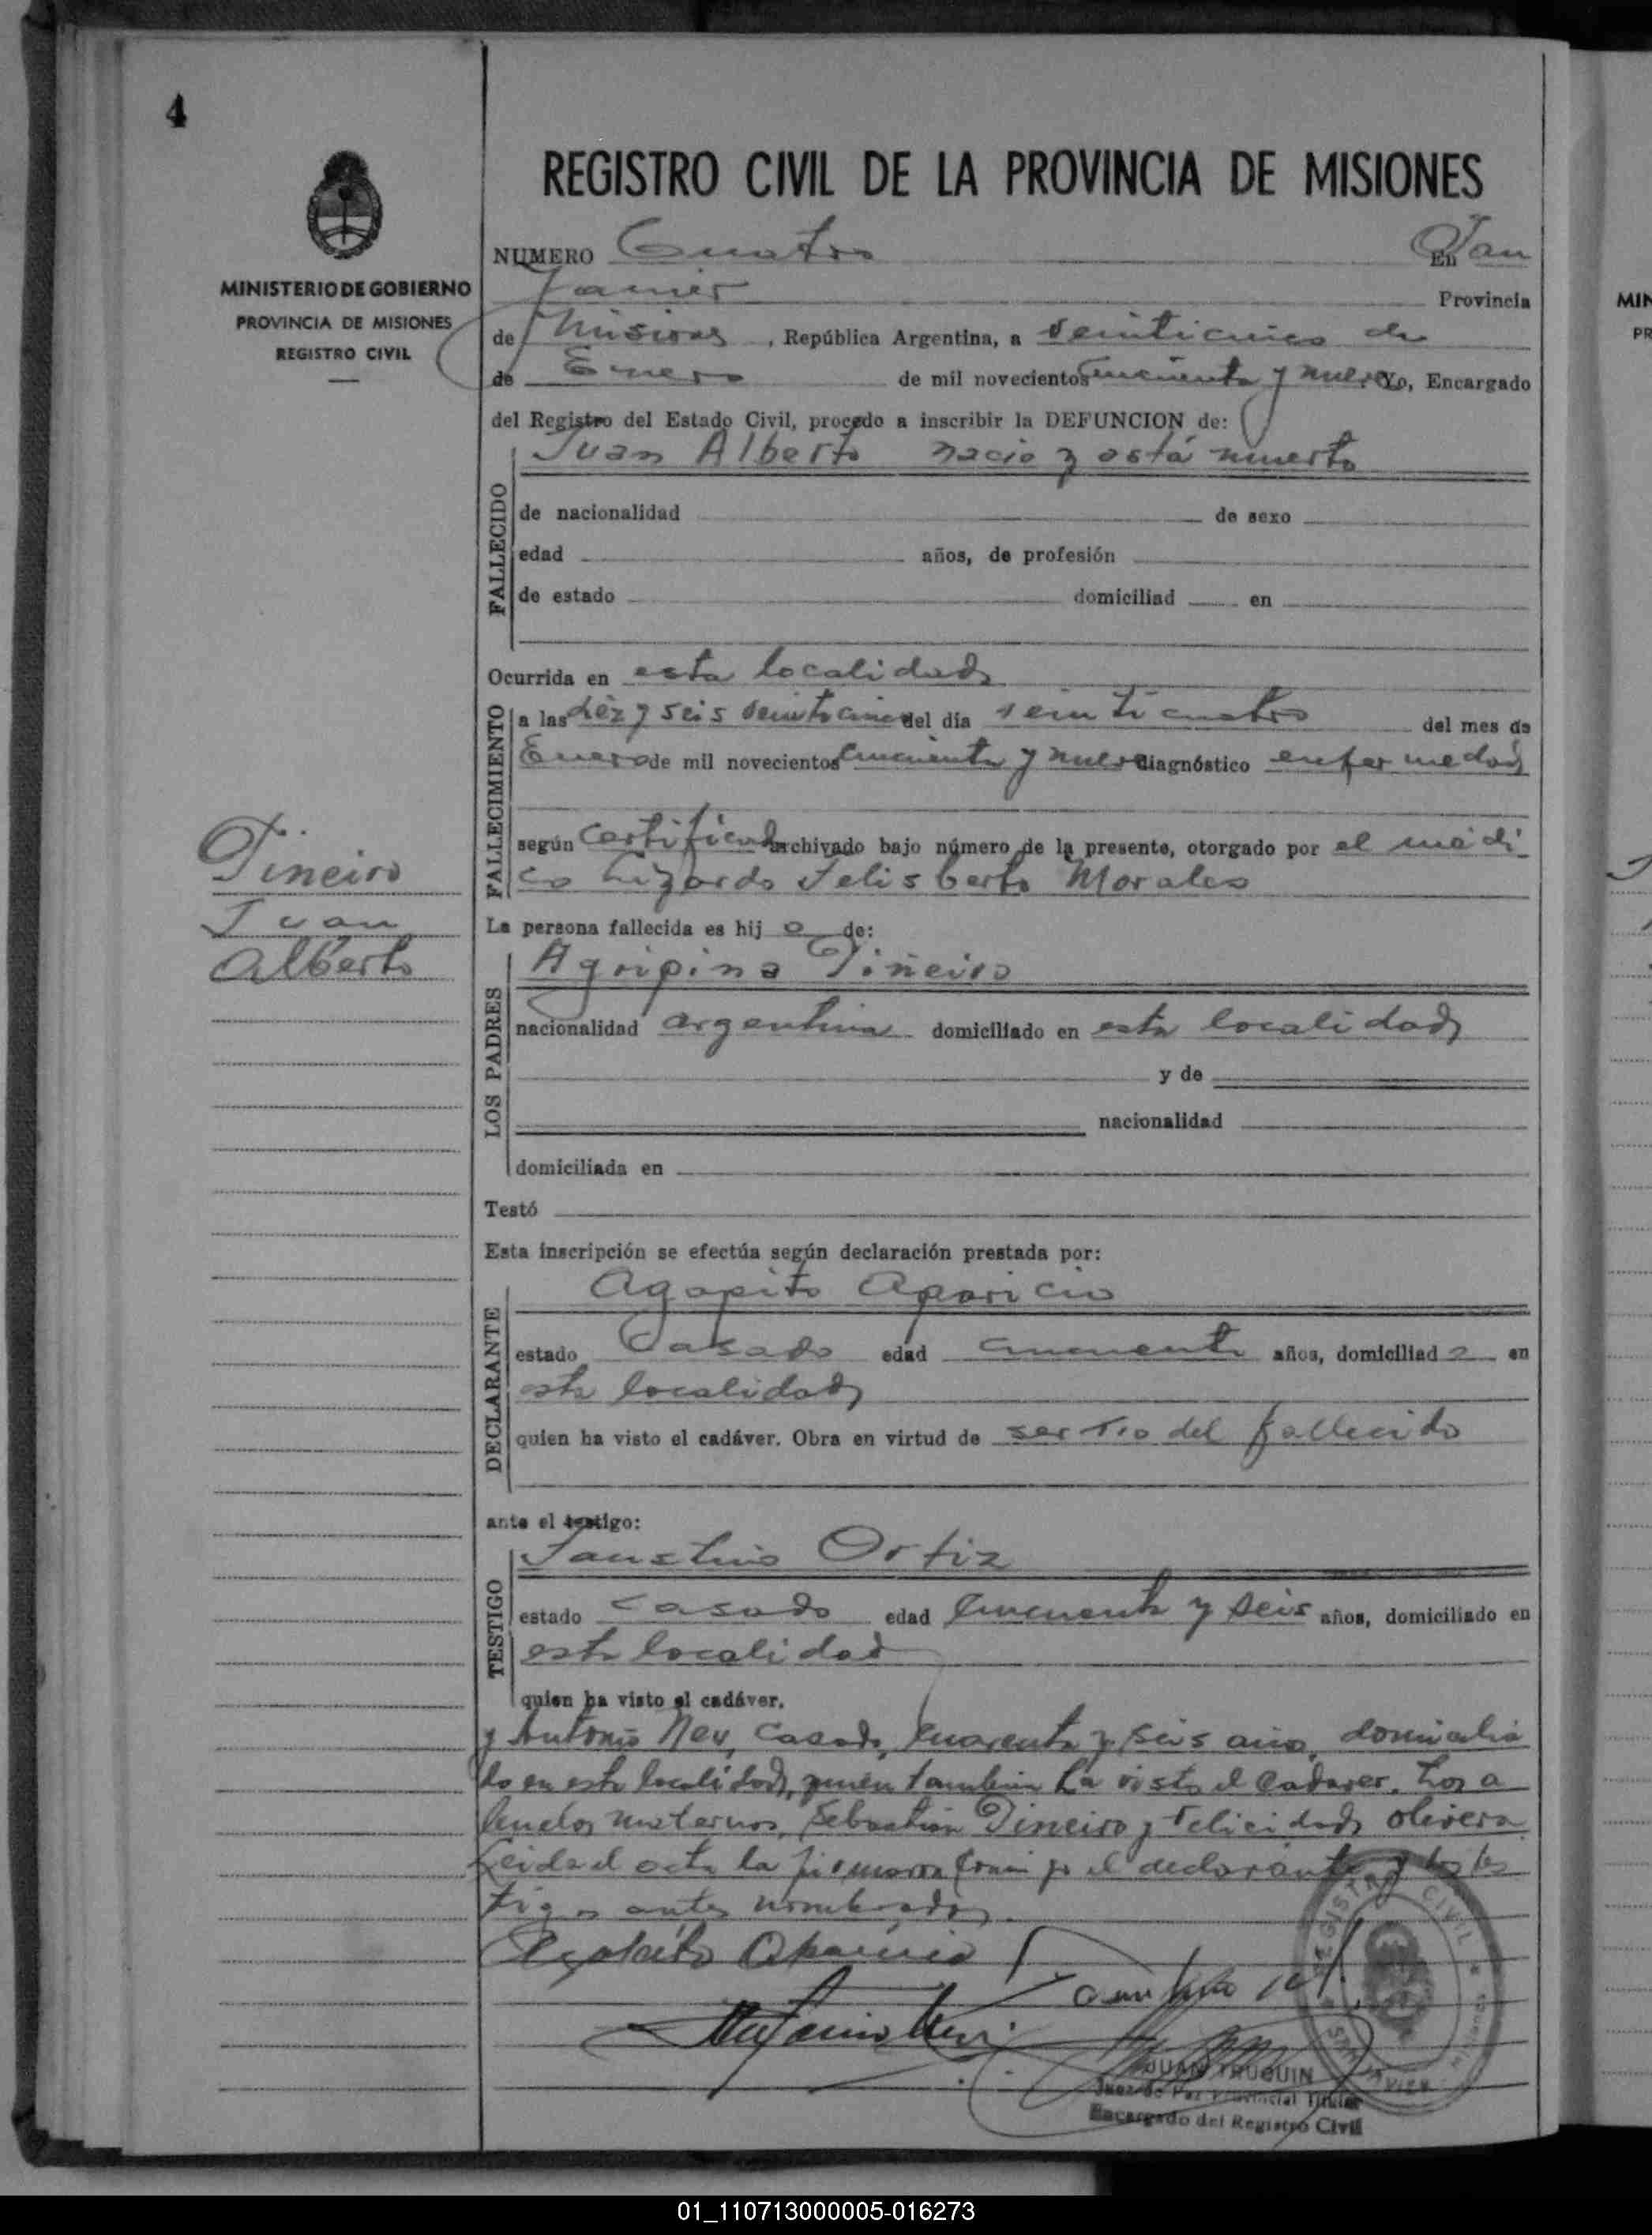 4
MINISTERIO DE GOBIERNO
PROVINCIA DE MISIONES
REGISTRO CIVIL
REGISTRO CIVIL DE LA PROVINCIA DE MISIONES
NUMERO Cuatro En San
Javier Provincia
de Misiones, República Argentina, a veinticinco de
de Enero de mil novecientos cincuenta y nueve Yo, Encargado
del Registro del Estado Civil, procedo a inscribir la DEFUNCION de:
Juan Alberto nacio y está muerto
FALLECIDO
de nacionalidad de sexo
edad años, de profesión
de estado domiciliad en
Ocurrida en esta localidad
FALLECIMIENTO
a las diez y seis veinticinco del día veinticuatro del mes de
Enero de mil novecientos cincuenta y nueve diagnóstico enfermedad
según Certificado archivado bajo número de la presente, otorgado por el médi
co Lizardo Felisberto Morales
Piñeiro
Juan
Alberto
La persona fallecida es hij o de:
LOS PADRES
Agripina Piñeiro
nacionalidad argentina domiciliado en esta localidad
y de
nacionalidad
domiciliada en
Testó
Esta inscripción se efectúa según declaración prestada por:
DECLARANTE
Agapito Aparicio
estado Casado edad cincuenta años, domiciliad o en
esta localidad
quien ha visto el cadáver. Obra en virtud de ser tio del fallecido
ante el testigo:
TESTIGO
Faustino Ortiz
estado casado edad cincuenta y seis años, domiciliado en
esta localidad
quien ha visto el cadáver.
y Antonio Casado, cuarenta y seis años, domicilia
do en esta localidad, quien tambien ha visto el cadaver. Los a
buelos maternos, Sebastian Piñeiro y Felicidad Olivera
Leida el acta la firmaron el declarante y los tes
tigos antes nombrados.
Agapito Aparicio
REGISTRO CIVIL
JAVIER
JUAN TRUQUIN
Juez de Paz Provincial Titular
Encargado del Registro Civil
MIN
PR
01_110713000005-016273